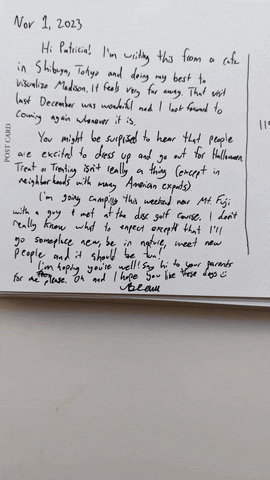 Nov 1, 2023
Hi Patricia! I'm writing this from a cafe
in Shibuya, Tokyo and doing my best to
visualize Madison. It feels very far away. That visit
last December was wonderful and I look forward to
coming again whenever it is.
You might be surprised to hear that people
are excited to dress up and go out for Halloween.
Treat or Treating isn't really a thing (except in
neighborhoods with many American expats)
I'm going camping this weekend near Mt. Fuji
with a guy I met at the disc golf course. I don't
really know what to expect except that I'll
go someplace new, be in nature, meet new
people and it should be fun!
I'm hoping you're well! Say hi to your parents
for me please. Oh and I hope you like these days
POST CARD